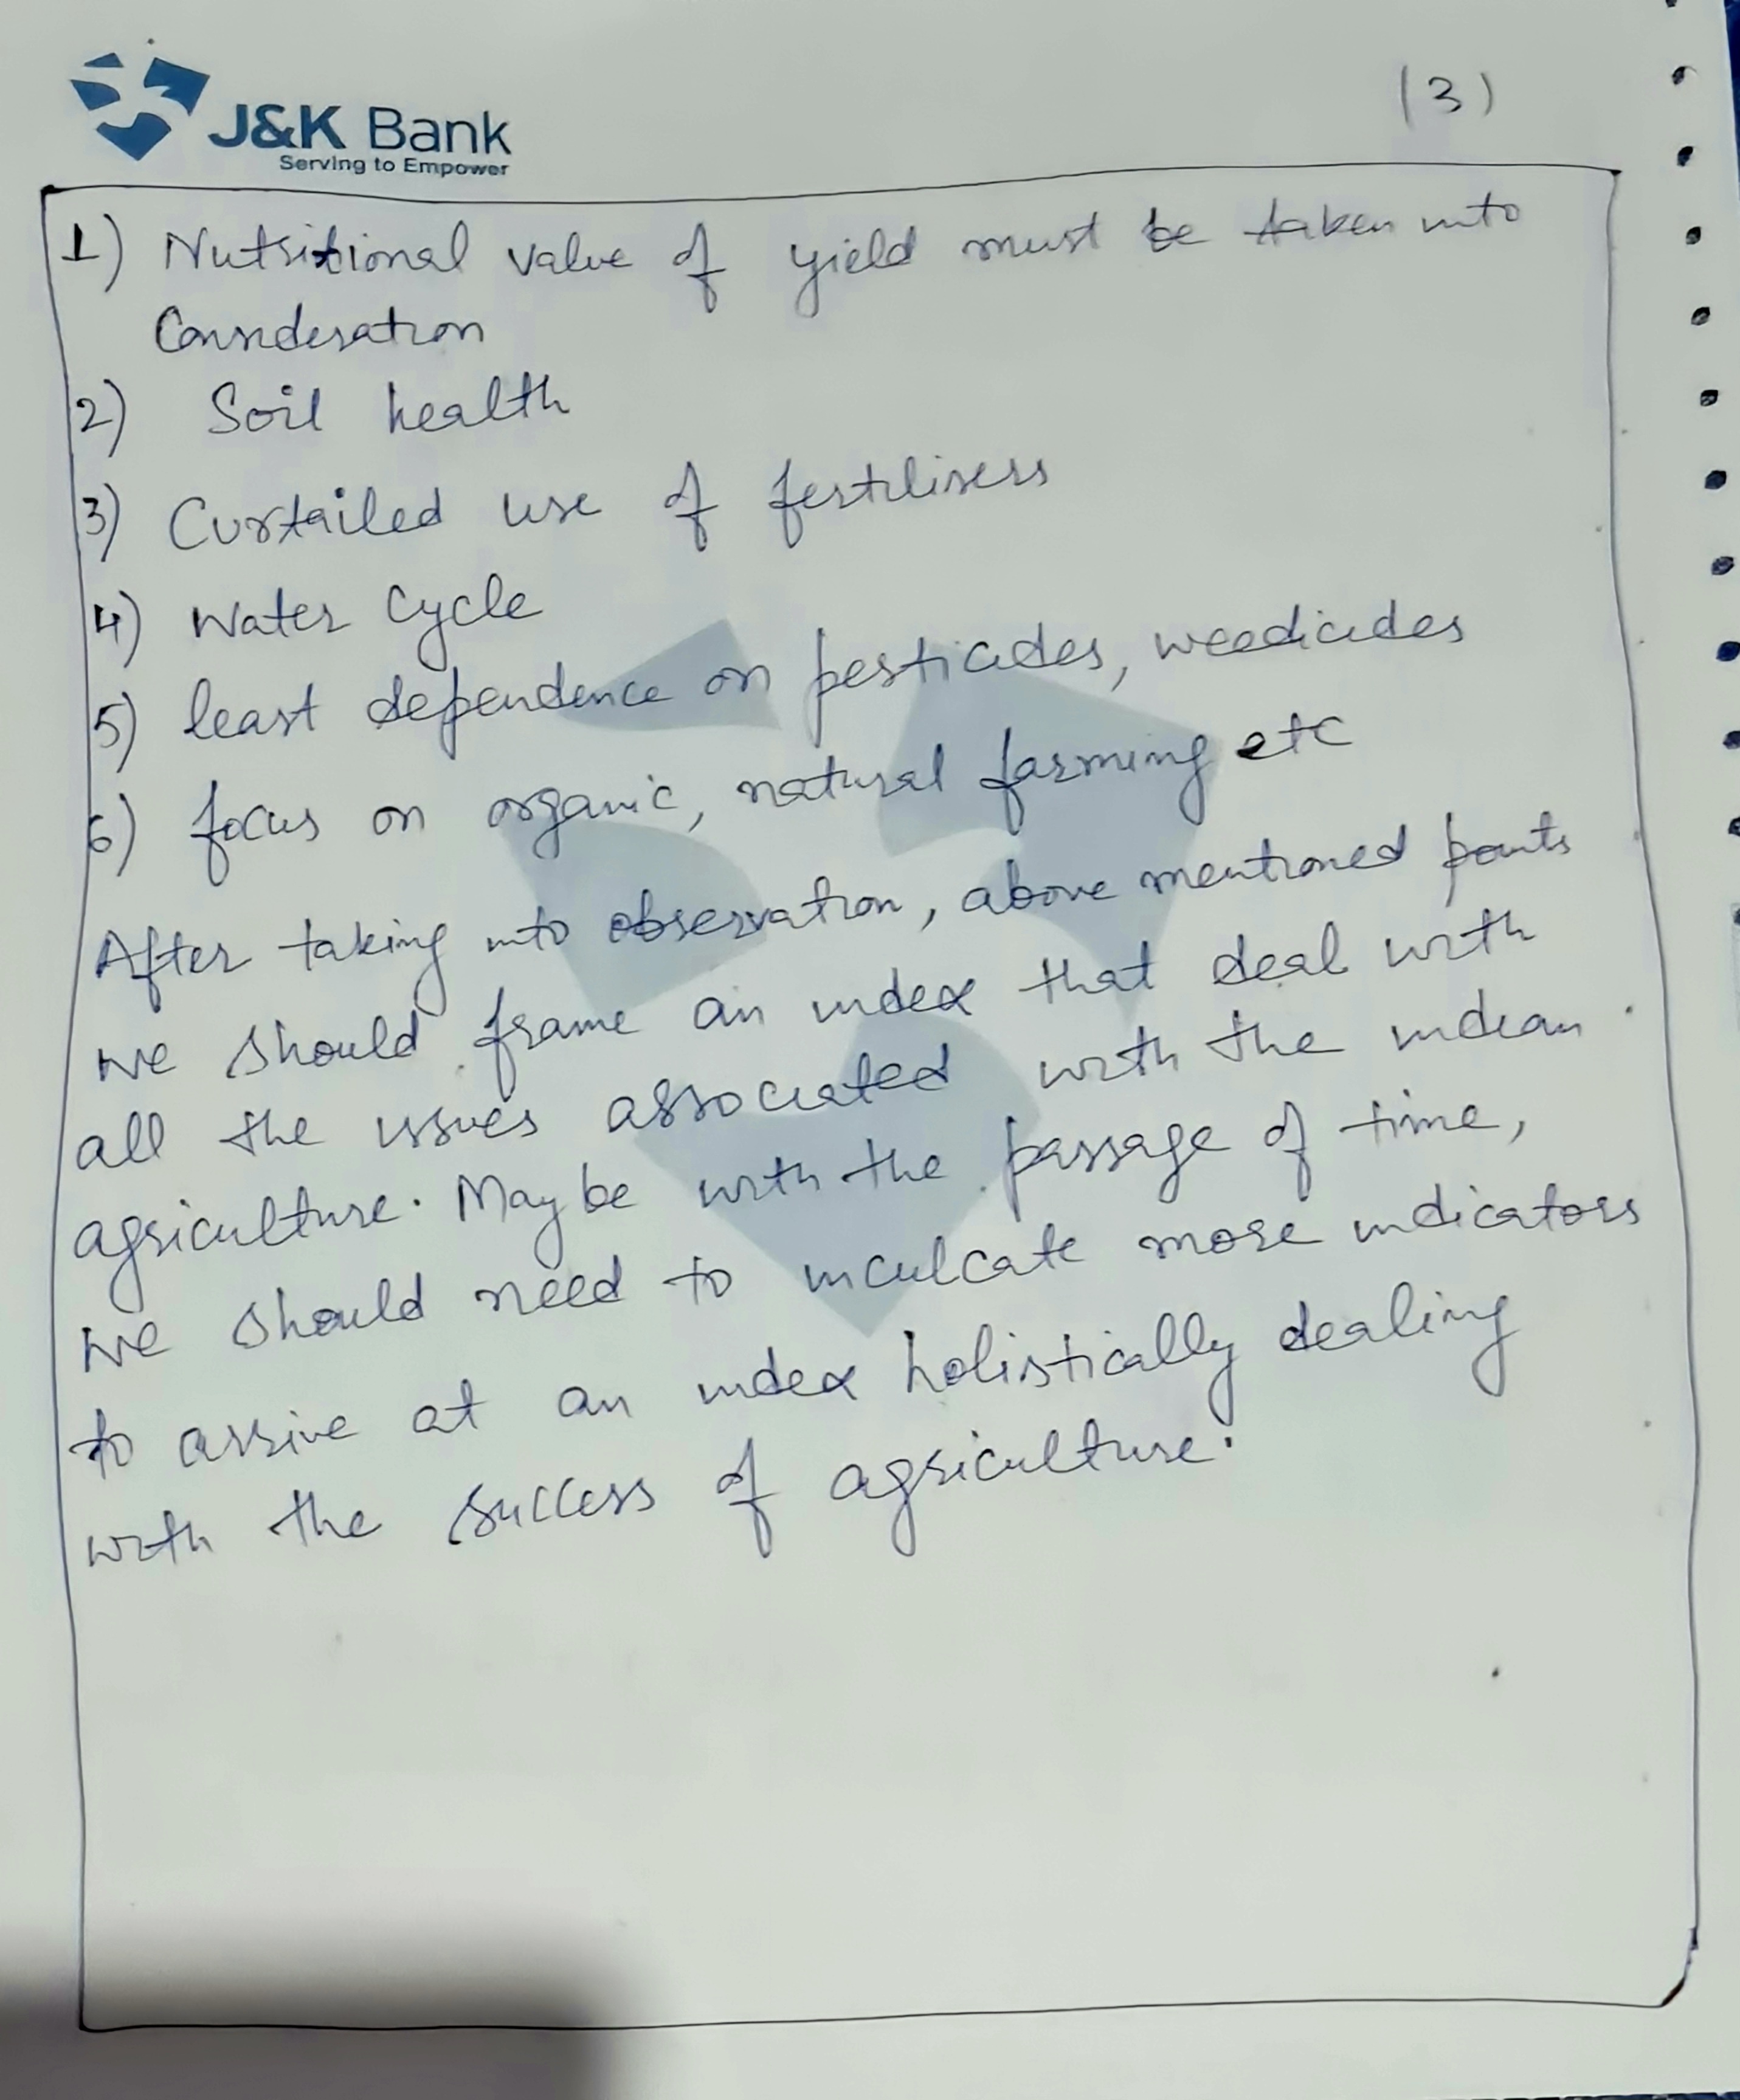 J&K Bank
Serving to Empower
(3)
1) Nutritional value of yield must be taken into
Consideration
2) Soil health
3) Curtailed use of fertilisers
4) Water Cycle
5) least dependence on pesticides, weedicides
6) focus on organic, natural farming etc
After taking into observation, above mentioned points
we should frame an index that deal with
all the issues associated with the indian
agriculture. May be with the passage of time,
we should need to inculcate more indicators
to arrive at an index holistically dealing
with the success of agriculture.